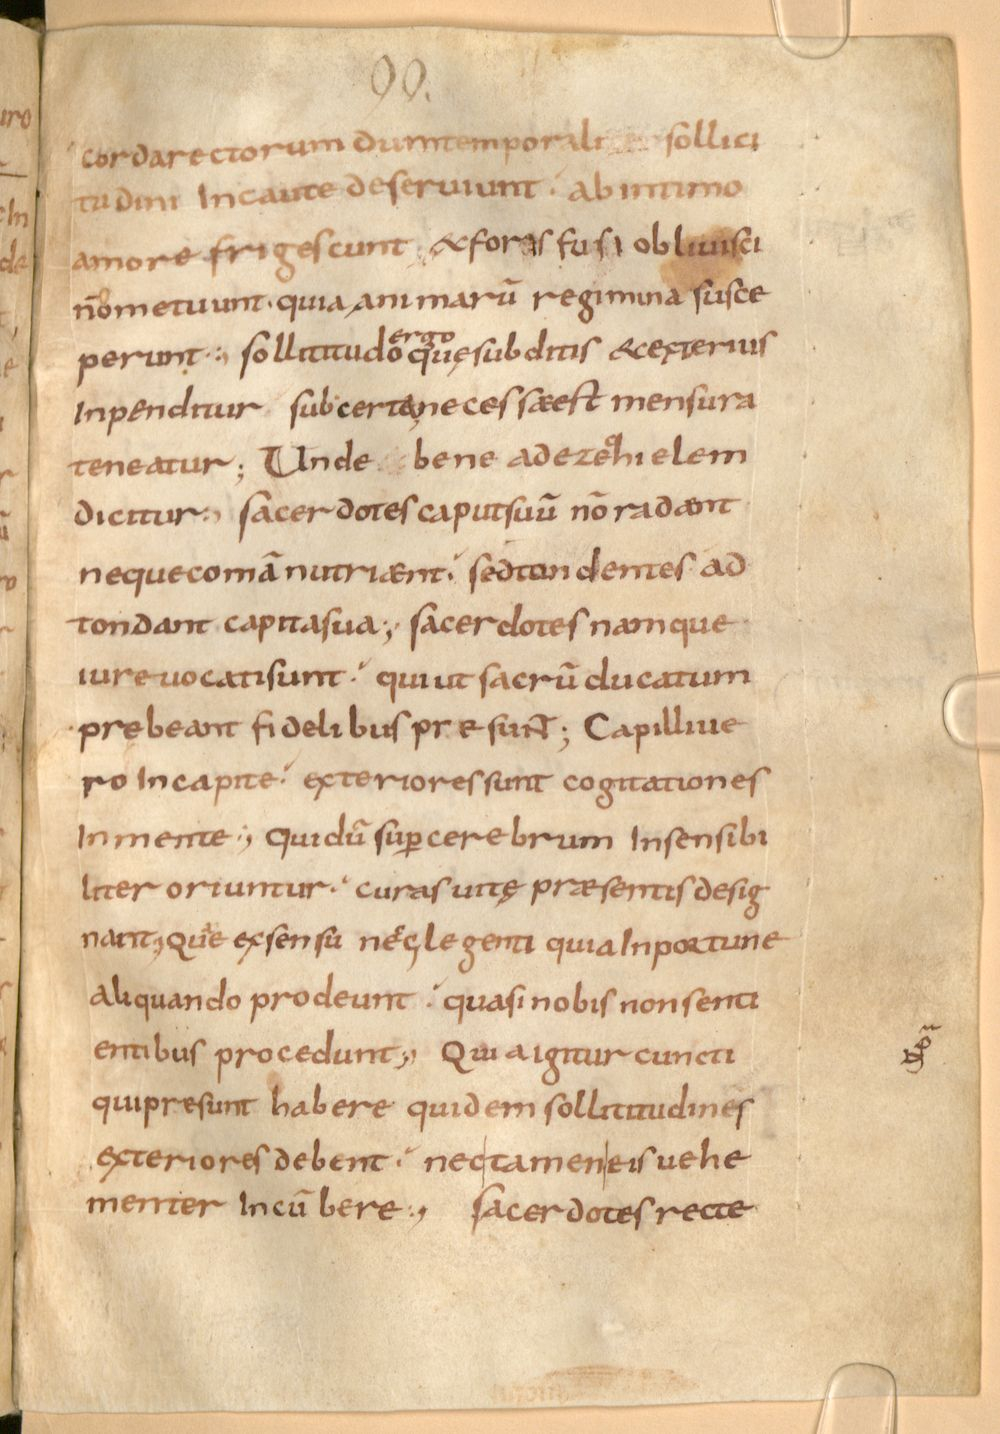 99.
corda rectorum dum temporali sollici
tudini Incaute deseruiunt. ab intimo
amore frigescunt, & foras fusi obliuisci
nōmetuunt. quia animarū regimina susce
perunt:, sollititudo ergo quę subditis & exterius
Inpenditur sub certa necessæ est mensura
teneatur; Unde bene ad ezechielem
dicitur:, sacerdotes caput suū nō radant
neque comā nutriant. sed tondentes ad
tondant capita sua;, sacerdotes namque
iure uocati sunt. qui ut sacrū ducatum
prębeant fidelibus pręsunt; Capilli ue
ro In capite. exteriores sunt cogitationes
In mente:, qui dū sup cerebrum Insensibi
liter oriuntur. curas uitę præsentis desig
nant, Que ex sensu neclegenti quia Inportune
aliquando prodeunt. quasi nobis non senti
entibus procedunt:, Quia igitur cuncti
qui presunt habere quidem sollititudines
exteriores debent. nec tamen eis uehe
menter Incūbere:, sacerdotes recte